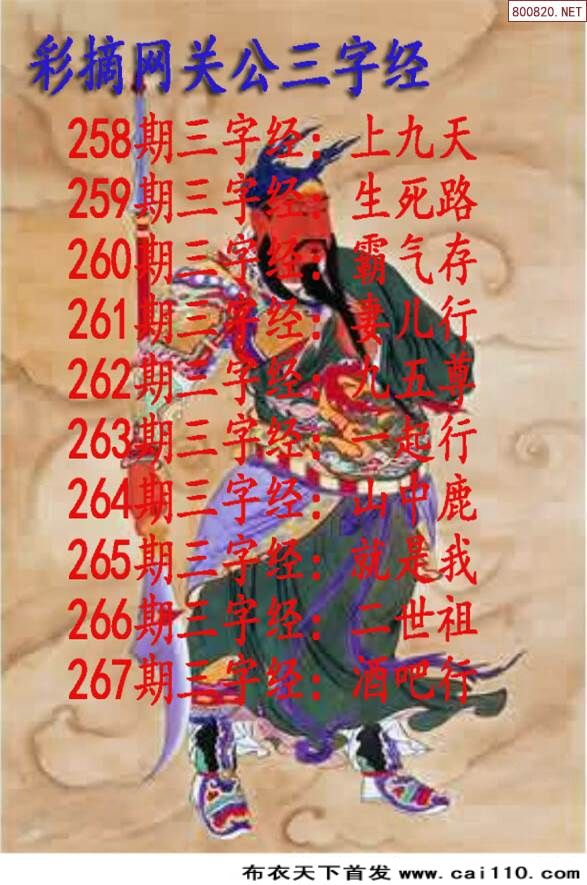 800820.NET
彩摘网关公三字经
258期三字经：上九天
259期三字经：生死路
260期三字经：霸气存
261期三字经：妻儿行
262期三字经：九五尊
263期三字经：一起行
264期三字经：山中鹿
265期三字经：就是我
266期三字经：二世祖
267期三字经：酒吧行
布衣天下首发 www.cai110.com